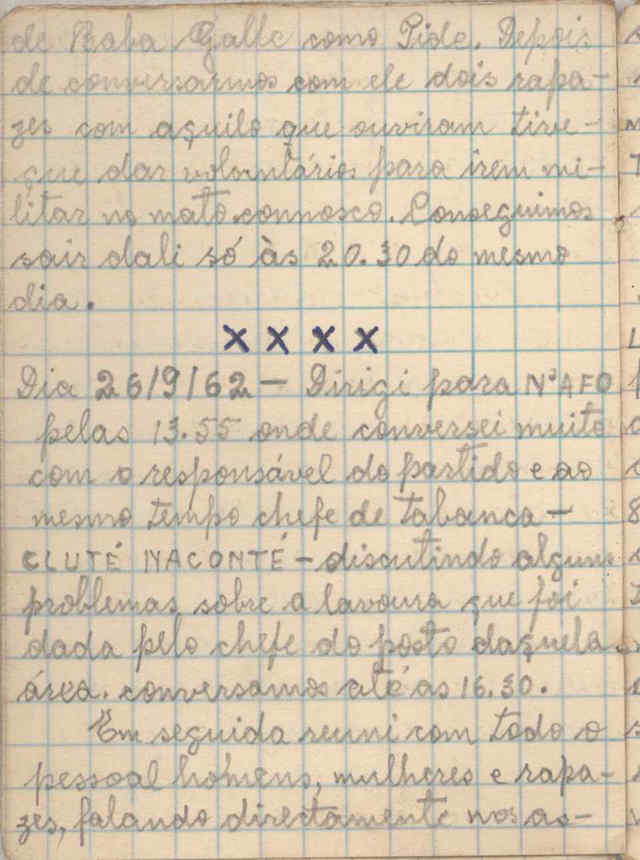 de Baba Galle como Pide. Depois
de conversarmos com ele dois rapa-
zes com aquilo que ouviram tive-
que dar voluntários para irem mi-
litar no mato connosco. Conseguimos
sair dali só às 20.30 do mesmo
dia.
x x x x
Dia 26/9/62 — Dirigi para N'AFO
pelas 13.55 onde conversei muito
com o responsável do partido e ao
mesmo tempo chefe de tabanca —
CLUTÉ NACONTÉ — discutindo alguns
problemas sobre a lavoura que foi
dada pelo chefe do posto daquela
área. conversamos até as 16.30.
Em seguida reuni com todo o
pessoal homens, mulheres e rapa-
zes, falando directamente nos as-